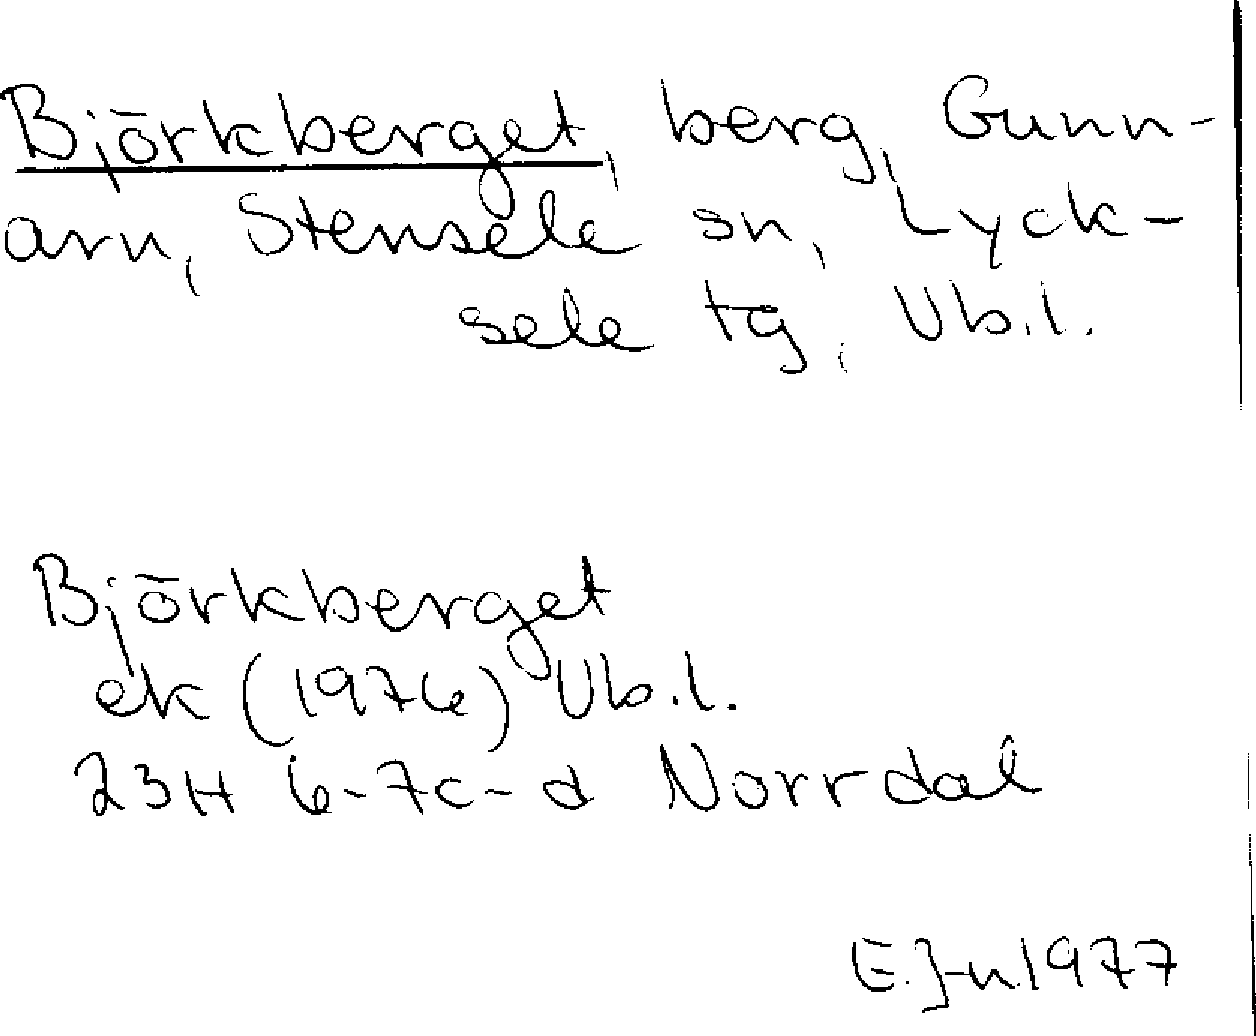 Björkberget, berg, Gunn-
arn, Stensele sn, Lyck-
sele tg, Vb.l.
Björkberget
ek (1976) Vb.l.
23H 6-7c-d Norrdal
E.J-n.1977